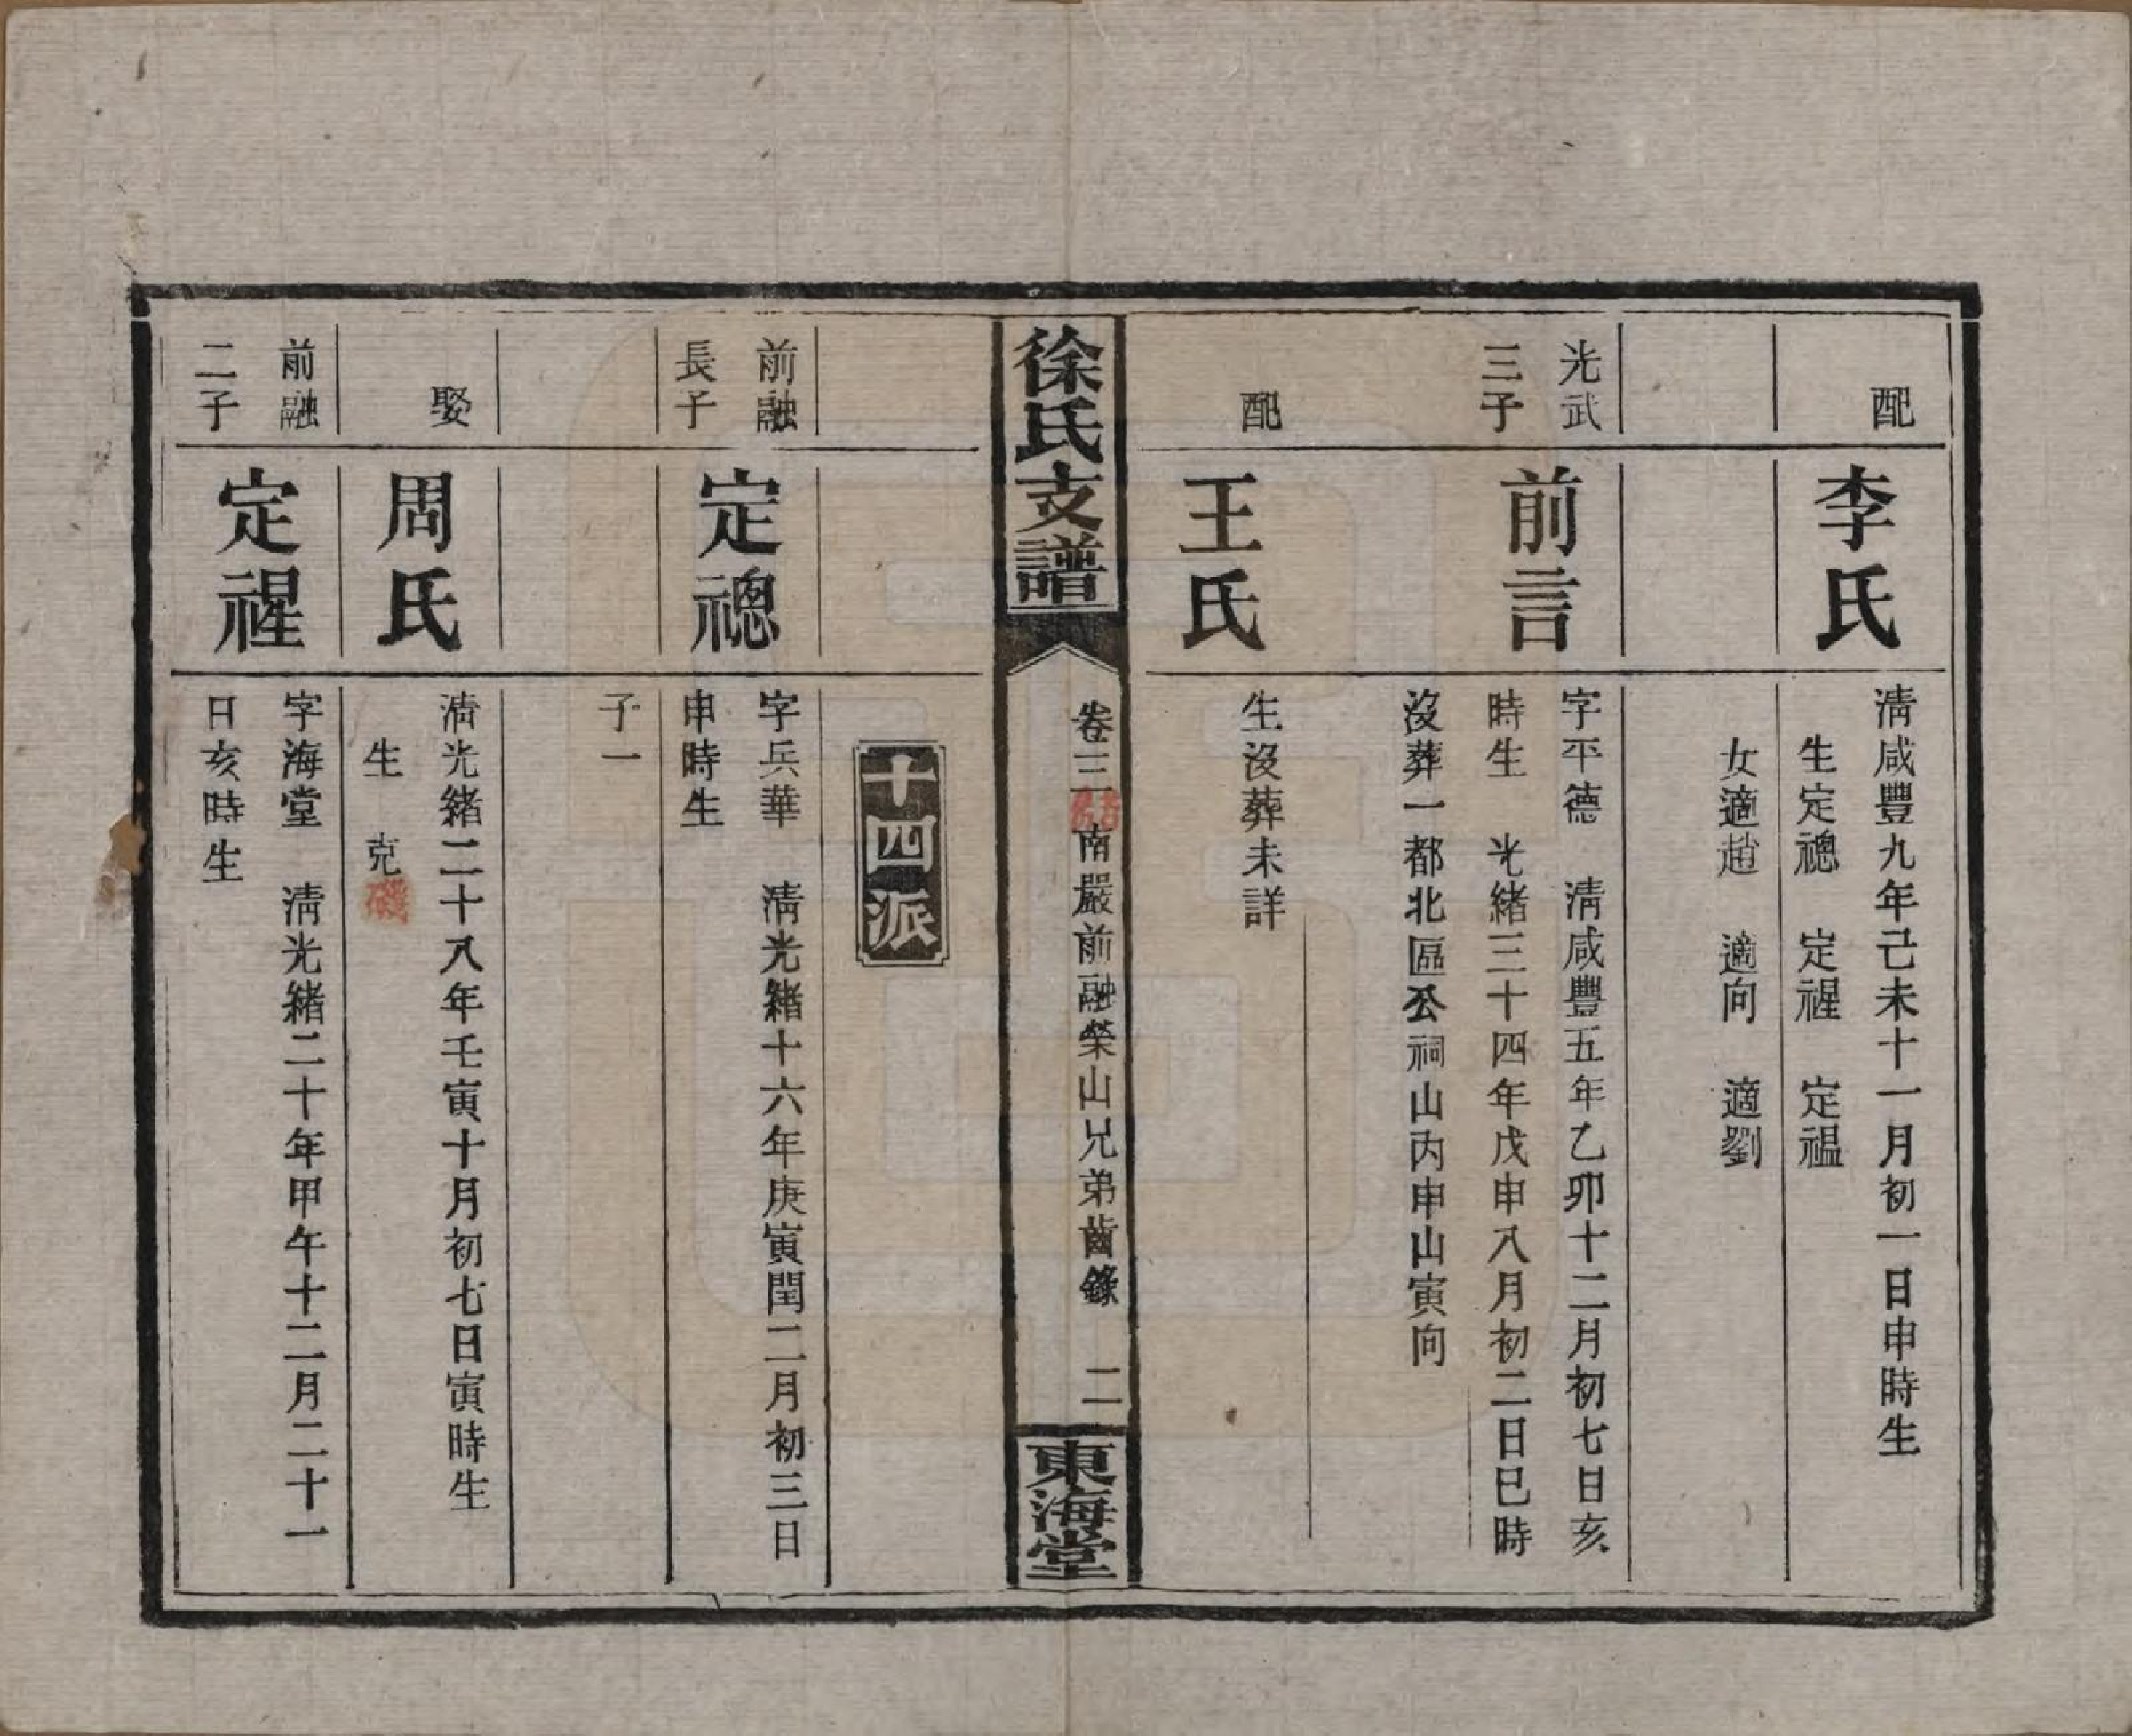 配
李氏
清咸豐九年己未十一月初一日申時生
生定禗　定禋　定福
女適趙　適向　適劉
光武
三子
前言
字平德　清咸豐五年乙卯十二月初七日亥
時生　光緒三十四年戊申八月初二日巳時
沒葬一都北區公祠山丙申山寅向
配
王氏
生沒葬未詳
徐氏支譜
卷三
南嚴前融榮山兄弟齒錄　二
東海堂
十四派
前融
長子
定禗
字兵華　清光緒十六年庚寅閏二月初三日
申時生
子一
娶
周氏
清光緒二十八年壬寅十月初七日寅時生
生　克磯
前融
二子
定禋
字海堂　清光緒二十年甲午十二月二十一
日亥時生